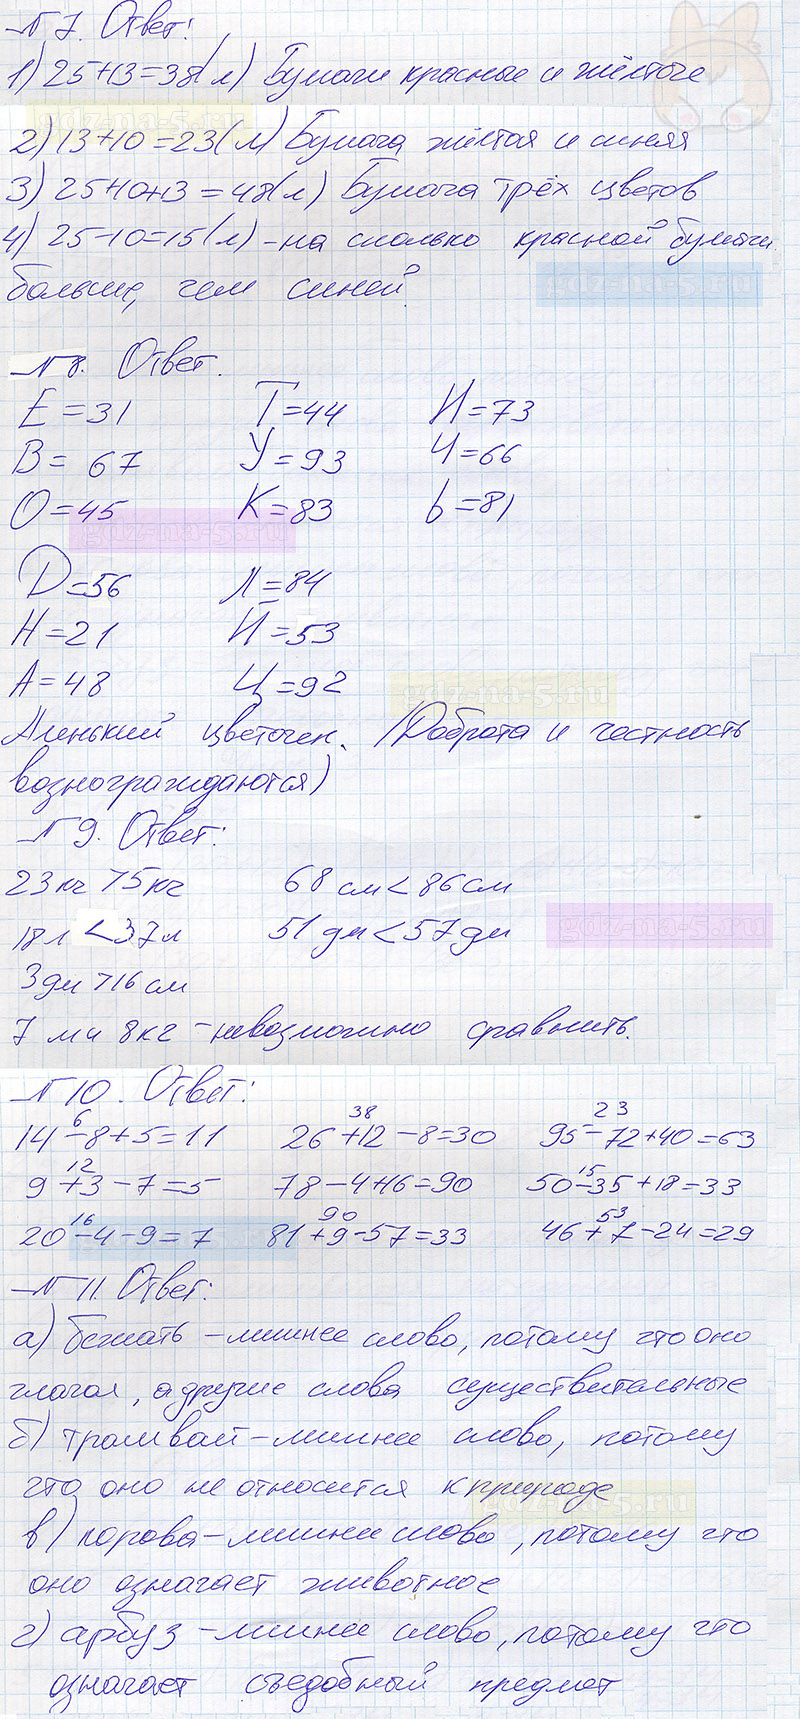 №7. Ответ:
1) 25+13=38(л) Бумаги красные и жёлтое
2) 13+10=23(л) Бумага жёлтая и синяя
3) 25+10+13=48(л) Бумага трёх цветов
4) 25-10=15(л) - на сколько красной бумаги
больше, чем синей.
№8. Ответ.
Е=31 Т=44 И=73
В=67 У=93 Ч=66
О=45 К=83 Ь=81
gdz-na-5.ru
Д=56 Л=84
Н=21 Й=53
А=48 Ц=92
gdz-na-5.ru
Аленький цветочек. (Доброта и честность
вознограждаются)
№9. Ответ:
23кг > 5кг 68 см < 86 см
18 л < 37 л 51 дм < 57 дм
gdz-na-5.ru
3 дм > 16 см
7 м и 8 кг - невозможно сравнить.
№10. Ответ:
6 38 23
14-8+5=11 26+12-8=30 95-72+40=63
12 15
9+3-7=5 78-4+16=90 50-35+18=33
16 90 53
20-4-9=7 81+9-57=33 46+7-24=29
№11. Ответ:
а) бежать - лишнее слово, потому что оно
глагол, а другие слова существительные
б) трамвай - лишнее слово, потому
что оно не относится к природе
gdz-na-5.ru
в) корова - лишнее слово, потому что
оно означает животное
г) арбуз - лишнее слово, потому что
означает съедобный предмет